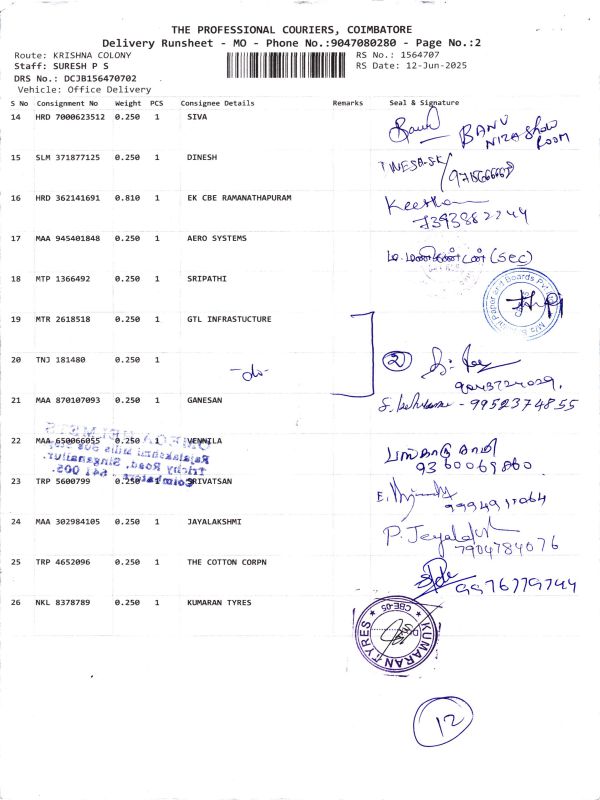 THE PROFESSIONAL COURIERS, COIMBATORE
Delivery Runsheet - MO - Phone No.:9047080280 - Page No.:2
Route: KRISHNA COLONY RS No.: 1564707
Staff: SURESH P S RS Date: 12-Jun-2025
DRS No.: DCJB156470702
Vehicle: Office Delivery
S No Consignment No Weight PCS Consignee Details Remarks Seal & Signature
14 HRD 7000623512 0.250 1 SIVA
BANU
ROOM
15 SLM 371877125 0.250 1 DINESH
16 HRD 362141691 0.810 1 EK CBE RAMANATHAPURAM
7393882244
17 MAA 945401848 0.250 1 AERO SYSTEMS
(Sec)
18 MTP 1366492 0.250 1 SRIPATHI
19 MTR 2618518 0.250 1 GTL INFRASTUCTURE
20 TNJ 181480 0.250 1 -do- 2
21 MAA 870107093 0.250 1 GANESAN
9952374855
22 MAA 650066055 0.250 1 VENNILA
9360069860
Rajalakshmi Mills
Trichy Road, Singanallur,
Coimbatore - 641 005.
23 TRP 5600799 0.250 1 SRIVATSAN
24 MAA 302984105 0.250 1 JAYALAKSHMI
7904784076
25 TRP 4652096 0.250 1 THE COTTON CORPN
26 NKL 8378789 0.250 1 KUMARAN TYRES
KUMARAN TYRES
CBE-05
12